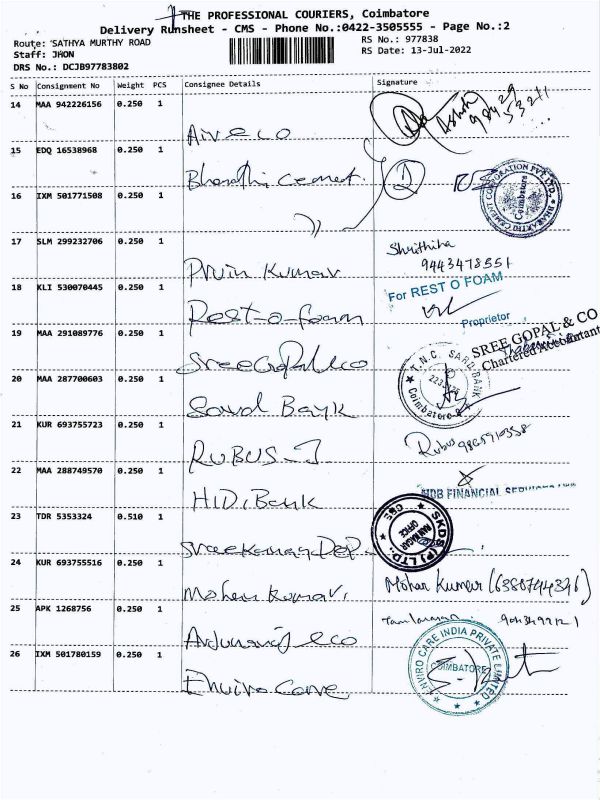 THE PROFESSIONAL COURIERS, Coimbatore
Delivery Runsheet - CMS - Phone No.:0422-3505555 - Page No.:2
Route: SATHYA MURTHY ROAD
RS No.: 977838
Staff: JHON
RS Date: 13-Jul-2022
DRS No.: DCJB97783802
S No Consignment No Weight PCS Consignee Details Signature
14 MAA 942226156 0.250 1
Ashish 98429
53211
15 EDQ 16538968 0.250 1
Bharathi Cement
BHARATHI CEMENT CORPORATION PVT. LTD. Coimbatore
16 IXM 501771508 0.250 1
17 SLM 299232706 0.250 1
Pruin Kumar
Shrithika
9443478551
18 KLI 530070445 0.250 1
Rest-o-foam
For REST O FOAM
Proprietor
19 MAA 291089776 0.250 1
Sree Gopal & co
SREE GOPAL & CO
Chartered Accountant
20 MAA 287700603 0.250 1
Sarad Bank
T.N.C. SARD BANK
Coimbatore
21 KUR 693755723 0.250 1
RUBUS
Rubus
22 MAA 288749570 0.250 1
Bank
HDB FINANCIAL SERVICES
23 TDR 5353324 0.510 1
SKDS (P) LTD. CBE RAM NAGAR OFFICE
24 KUR 693755516 0.250 1
Mohan Kumar.
Mohan Kumar (6380744396)
25 APK 1268756 0.250 1
Arjunaraj & co
26 IXM 501780159 0.250 1
Enviro Care
ENVIRO CARE INDIA PRIVATE LIMITED
COIMBATORE